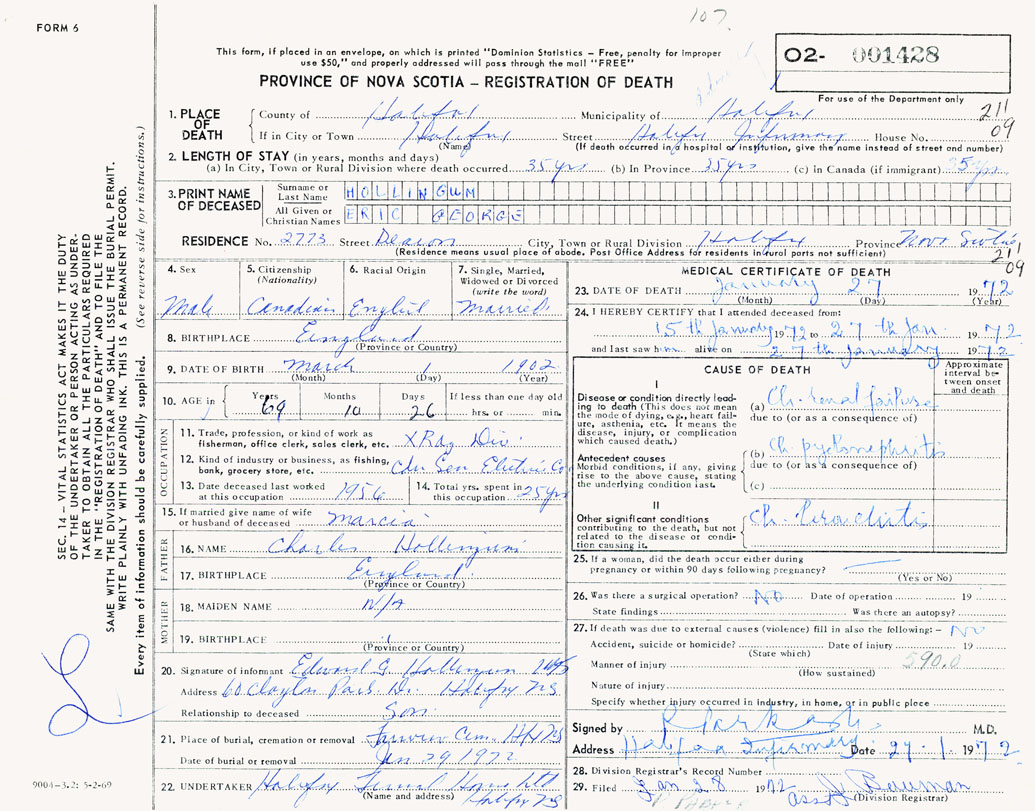 107
FORM 6
This form, if placed in an envelope, on which is printed "Dominion Statistics – Free, penalty for improper
use $50," and properly addressed will pass through the mail "FREE"
PROVINCE OF NOVA SCOTIA – REGISTRATION OF DEATH
02- 001428
For use of the Department only
211
09
1. PLACE OF DEATH
County of Halifax Municipality of Halifax
If in City or Town Halifax Street Halifax Infirmary House No.
(Name) (If death occurred in a hospital or institution, give the name instead of street and number)
2. LENGTH OF STAY (in years, months and days)
(a) In City, Town or Rural Division where death occurred 35 yrs (b) In Province 35 yrs (c) In Canada (if immigrant) 35 yrs
3. PRINT NAME OF DECEASED
Surname or Last Name HOLLINGUM
All Given or Christian Names ERIC GEORGE
RESIDENCE No. 2773 Street Deacon City, Town or Rural Division Halifax Province Nova Scotia
(Residence means usual place of abode. Post Office Address for residents in rural parts not sufficient)
211
09
4. Sex
Male
5. Citizenship
(Nationality)
Canadian
6. Racial Origin
English
7. Single, Married,
Widowed or Divorced
(write the word)
Married
8. BIRTHPLACE England
(Province or Country)
9. DATE OF BIRTH March 1 1902
(Month) (Day) (Year)
10. AGE in
Years Months Days If less than one day old
69 10 26 hrs. or min.
OCCUPATION
11. Trade, profession, or kind of work as
fisherman, office clerk, sales clerk, etc. XRay Div.
12. Kind of industry or business, as fishing,
bank, grocery store, etc. Gen Electric Co
13. Date deceased last worked
at this occupation 1956
14. Total yrs. spent in
this occupation 25 yrs
15. If married give name of wife
or husband of deceased Marcia
FATHER
16. NAME Charles Hollingum
17. BIRTHPLACE England
(Province or Country)
MOTHER
18. MAIDEN NAME N/A
19. BIRTHPLACE
(Province or Country)
20. Signature of informant Edward G. Hollingum
Address 60 Clayton Park Dr. Halifax NS
Relationship to deceased Son
21. Place of burial, cremation or removal Fairview Cem.
Date of burial or removal Jan 29 1972
22. UNDERTAKER Halifax Funeral
(Name and address) Halifax NS
MEDICAL CERTIFICATE OF DEATH
23. DATE OF DEATH January 27 1972
(Month) (Day) (Year)
24. I HEREBY CERTIFY that I attended deceased from:
15 th January 1972 to 27 th Jan. 1972
and last saw him alive on 27 th January 1972
CAUSE OF DEATH
Approximate
interval be-
tween onset
and death
I
Disease or condition directly lead-
ing to death (This does not mean
the mode of dying, e.g., heart fail-
ure, asthenia, etc. It means the
disease, injury, or complication
which caused death.)
(a) Ch. renal failure
due to (or as a consequence of)
Antecedent causes
Morbid conditions, if any, giving
rise to the above cause, stating
the underlying condition last.
(b) Ch pyelonephritis
due to (or as a consequence of)
(c)
II
Other significant conditions
contributing to the death, but not
related to the disease or condi-
tion causing it.
Ch.
25. If a woman, did the death occur either during
pregnancy or within 90 days following pregnancy?
(Yes or No)
26. Was there a surgical operation? NO Date of operation 19
State findings Was there an autopsy?
27. If death was due to external causes (violence) fill in also the following:– No
Accident, suicide or homicide? Date of injury 19
(State which)
Manner of injury 590.0
(How sustained)
Nature of injury
Specify whether injury occurred in industry, in home, or in public place
Signed by M.D.
Address Halifax Infirmary Date 27.1.1972
28. Division Registrar's Record Number
29. Filed Jan 28 1972 J. Bauman
asst (Division Registrar)
SEC. 14 – VITAL STATISTICS ACT MAKES IT THE DUTY
OF THE UNDERTAKER OR PERSON ACTING AS UNDER-
TAKER TO OBTAIN ALL THE PARTICULARS REQUIRED
IN THE "REGISTRATION OF DEATH" AND TO FILE THE
SAME WITH THE DIVISION REGISTRAR WHO SHALL ISSUE THE BURIAL PERMIT.
WRITE PLAINLY WITH UNFADING INK. THIS IS A PERMANENT RECORD.
Every item of information should be carefully supplied. (See reverse side for instructions.)
9004-3.2: 5-2-69